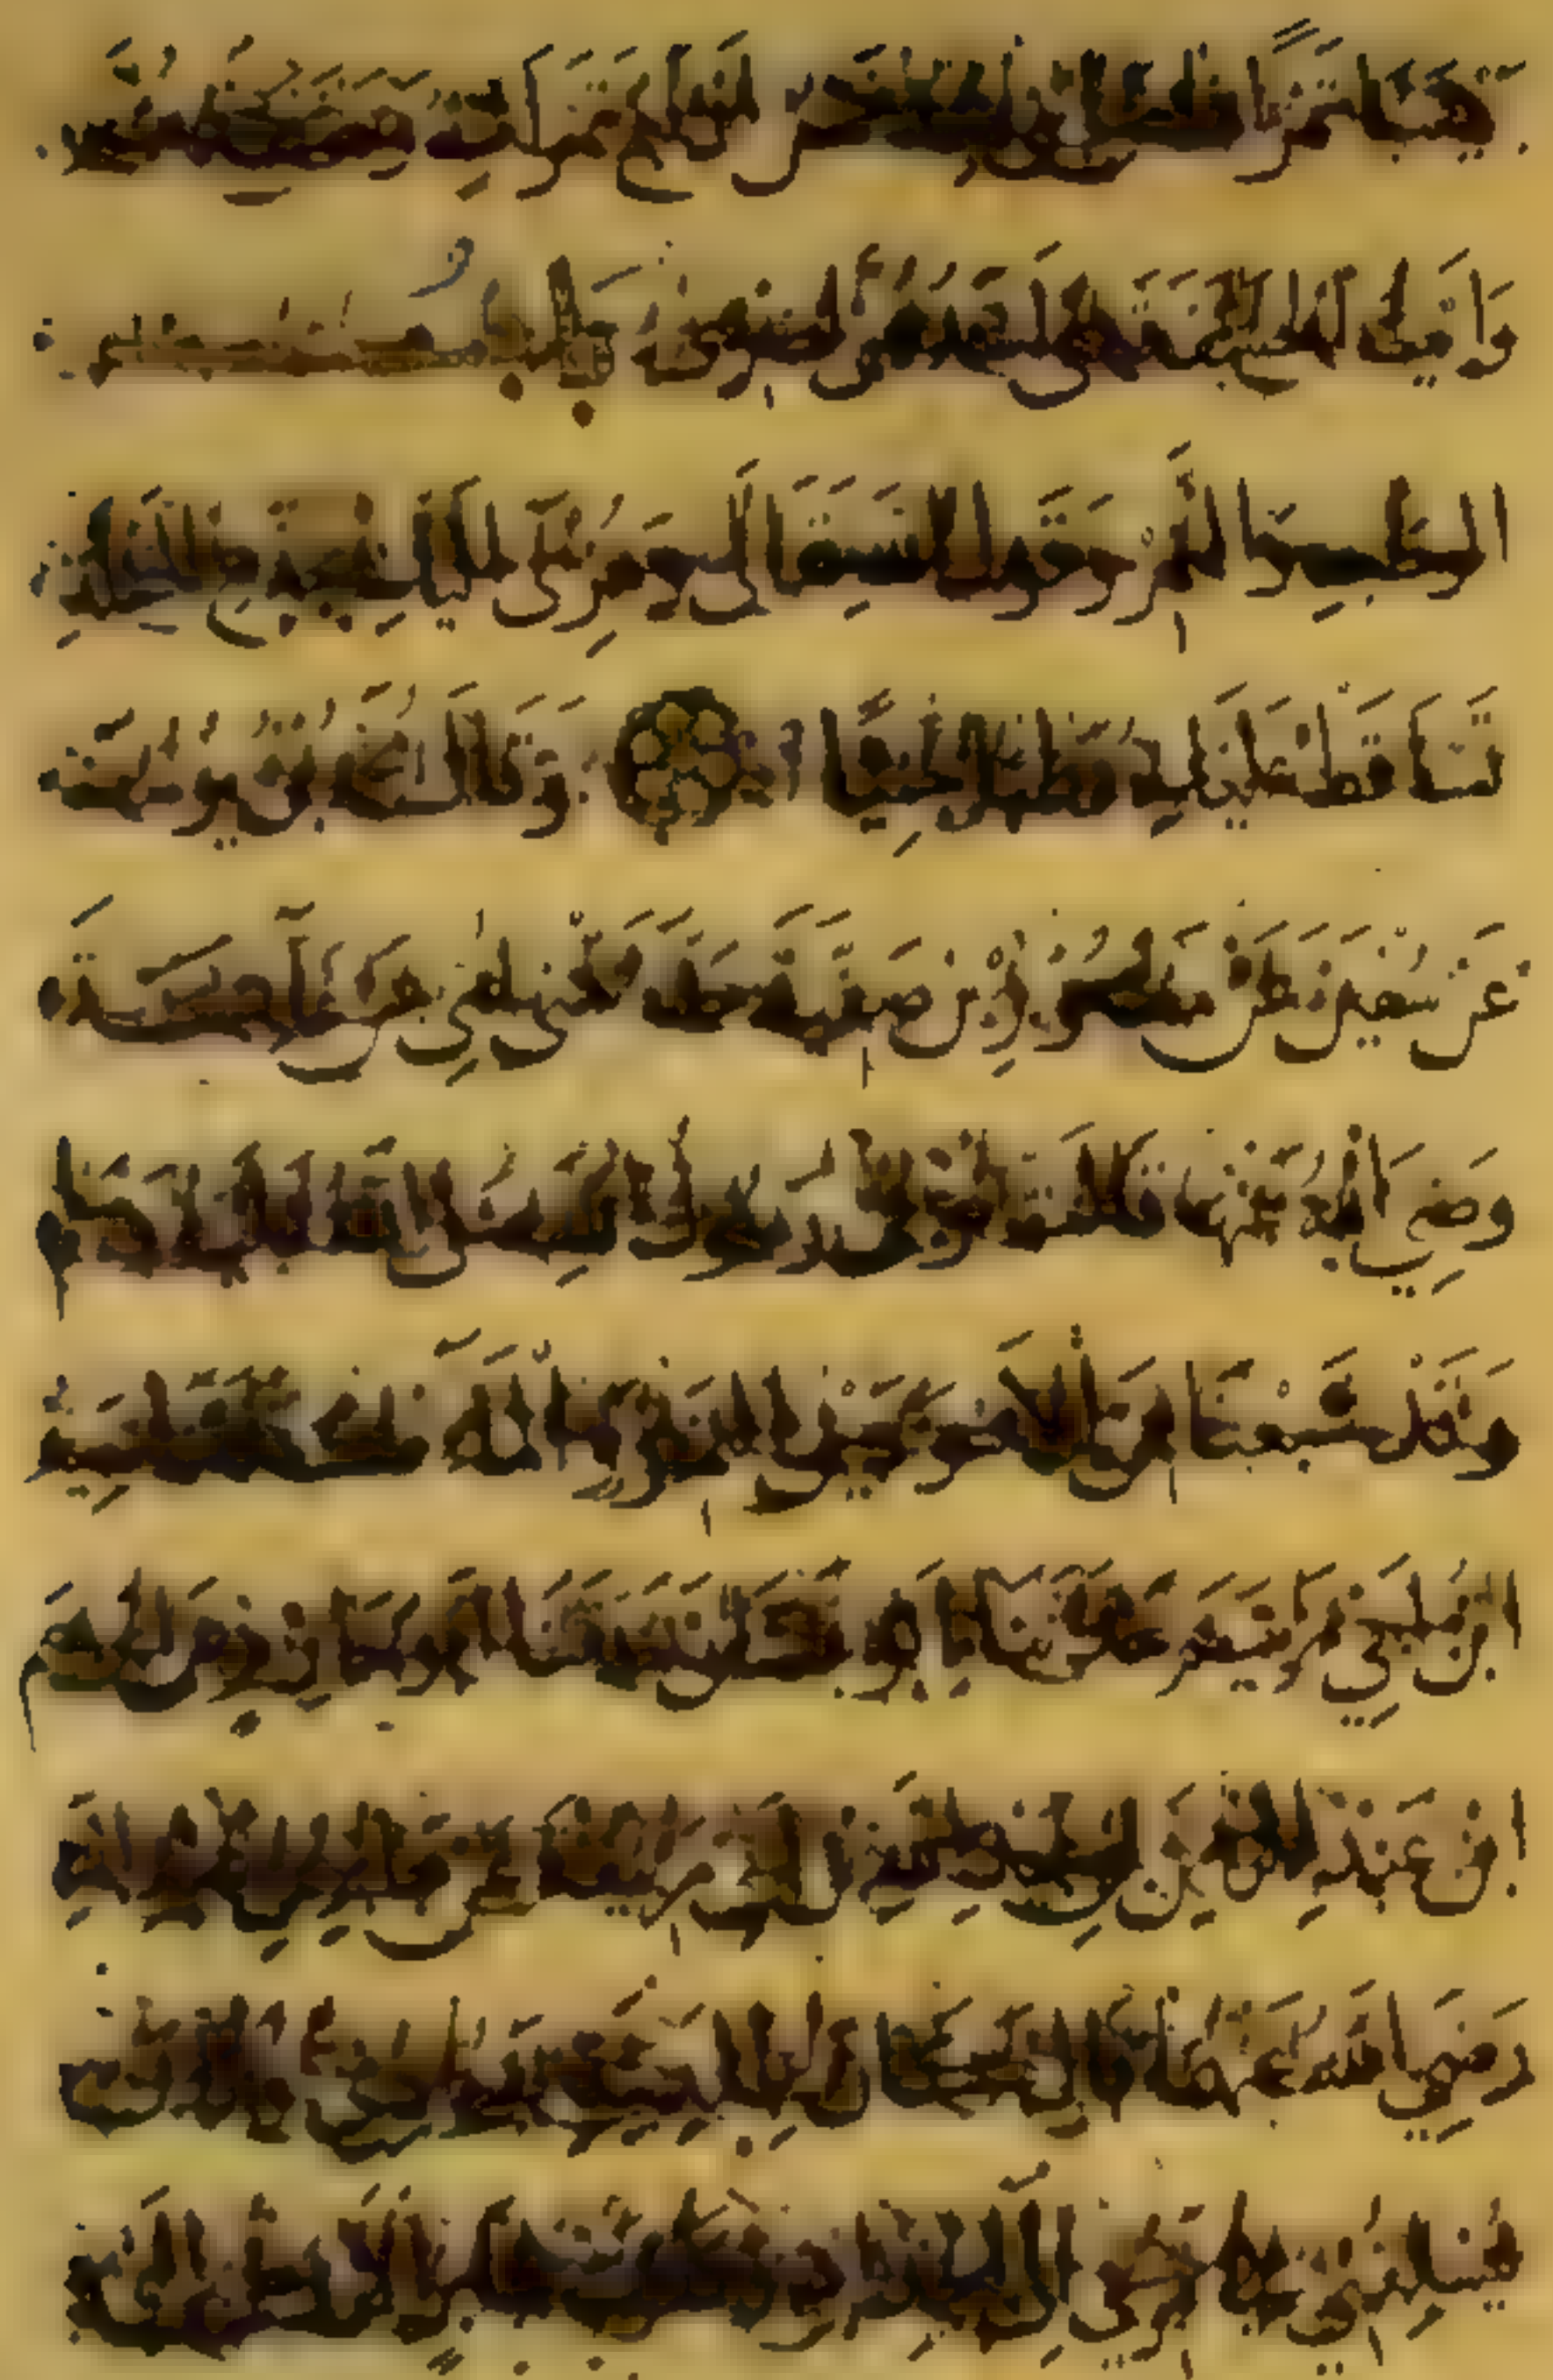 بيننا تمرا فأصابني منه خمس أربع تمرات وحشفة
وإني رأيت الحشفة هي أشدهن لضرسي باب
الرطب والتمر وقول الله تعالى وهزي إليك بجذع النخلة
تساقط عليك رطبا جنيا وقال محمد بن يوسف
عن سفين عن منصور ابن صفية حدثتني أمي عن عائشة
رضي الله عنها قالت توفي رسول الله صلى الله عليه وسلم
وقد شبعنا من الأسودين التمر والماء حدثنا سعيد
ابن أبي مريم حدثنا أبو غسان حدثنا أبو حازم عن إبراهيم
ابن عبد الرحمن بن عبد الله بن أبي ربيعة عن جابر بن عبد الله
رضي الله عنهما قال كان بالمدينة يهودي وكان
يسلفني في تمري إلى الجذاذ وكانت لجابر الأرض التي